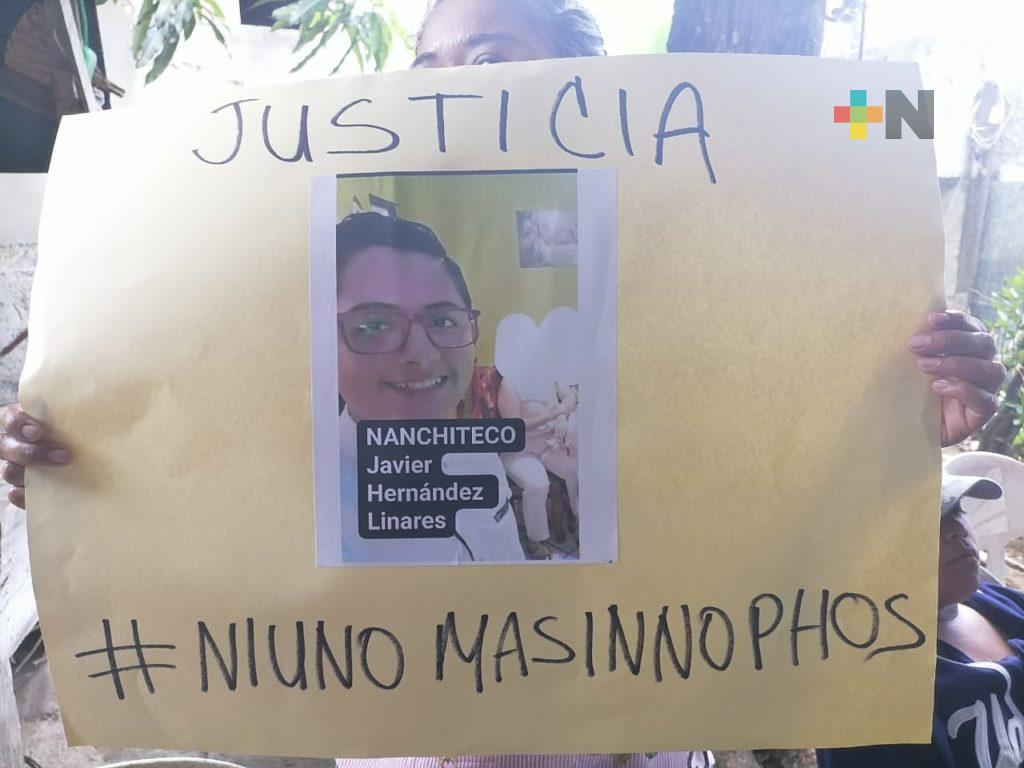 JUSTICIA
+N
NANCHITECO
Javier
Hernández
Linares
#NIUNO MASINNOPHOS